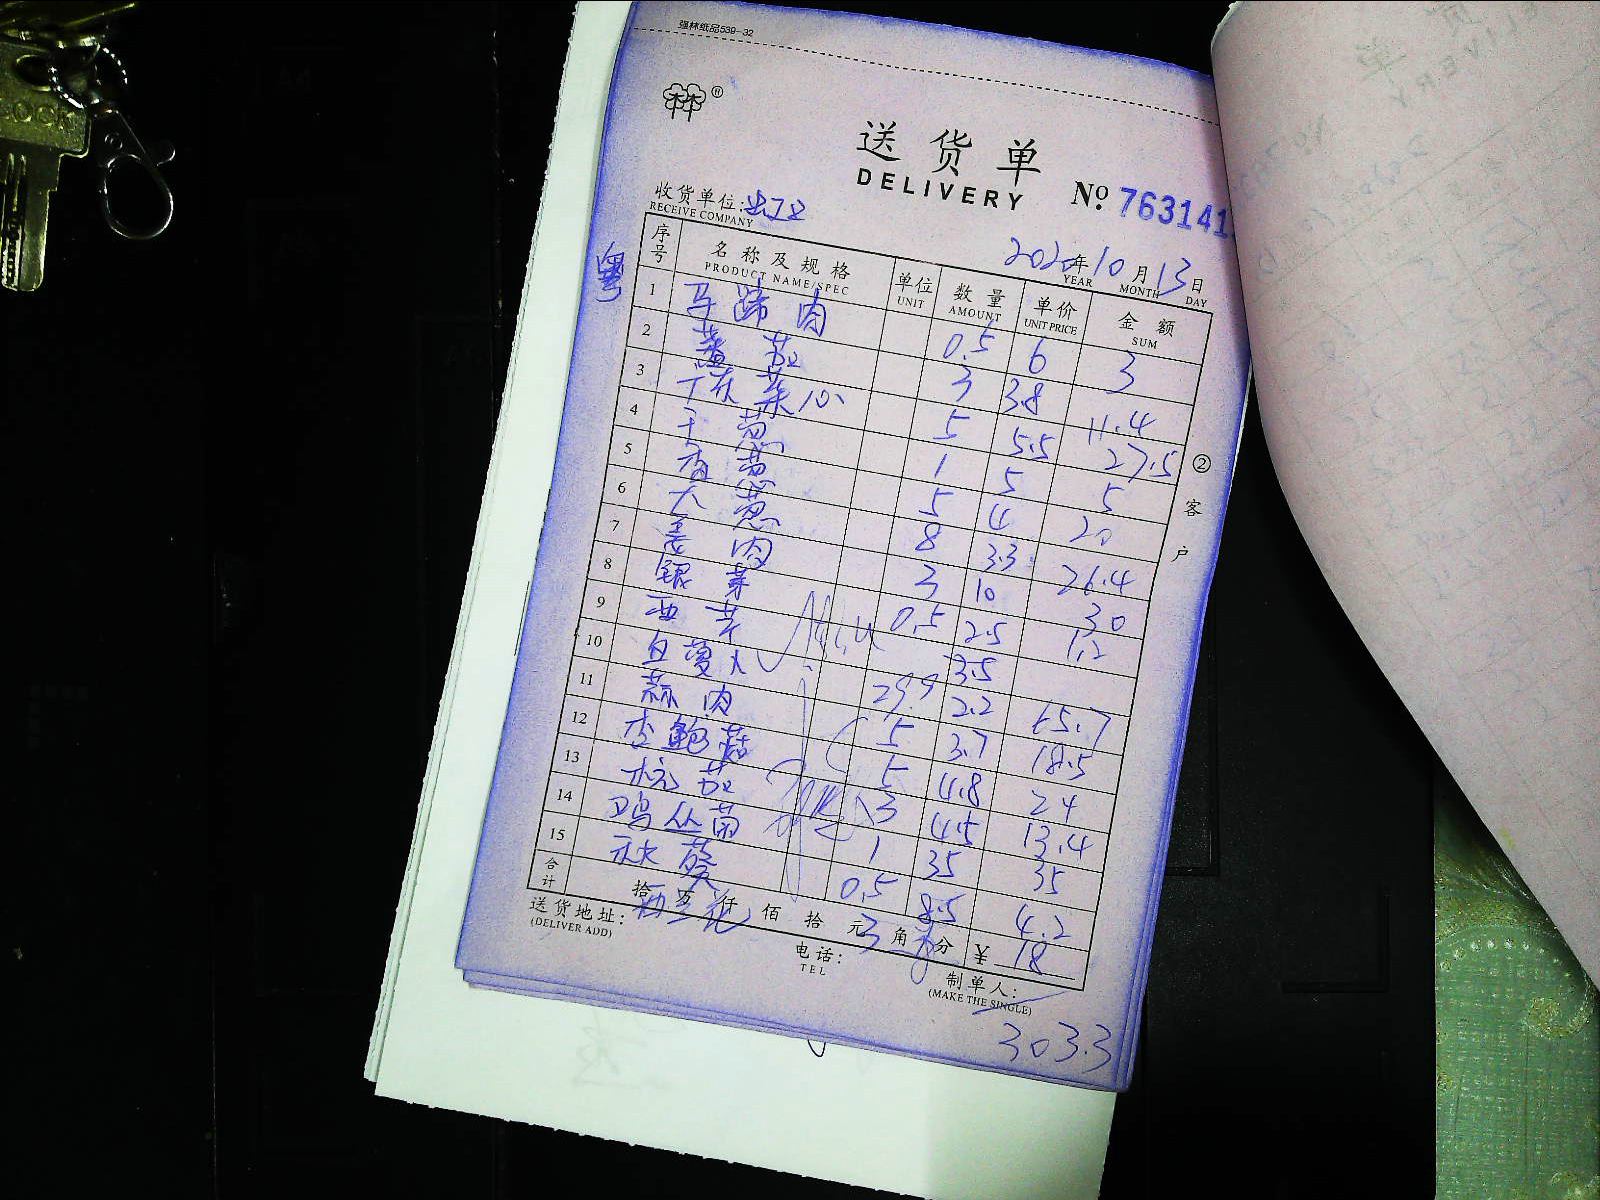 强林纸品539-32
林林®
送货单
DELIVERY
No. 763141
收货单位:
RECEIVE COMPANY
2020年10月13日
YEAR MONTH DAY
粤
序号 名称及规格 单位 数量 单价 金额
PRODUCT NAME/SPEC UNIT AMOUNT UNIT PRICE SUM
1 马蹄肉 0.5 6 3
2 茄 3 3.8 11.4
3 菜心 5 5.5 27.5
4 干葱 1 5 5
5 香葱 5 4 20
6 大葱 8 3.3 26.4
7 姜肉 3 10 30
8 银芽 0.5 2.5 1.2
9 西芹 3.5
10 29.9 2.2 65.7
11 蒜肉 5 3.7 18.5
12 杏鲍菇 5 4.8 24
13 茄 3 4.5 13.4
14 鸡丛菌 1 35 35
15 秋葵 0.5 8.5 4.2
合计 拾 万 仟 佰 拾 元 角 分 ¥ 18
西兰花 3 6
送货地址:
(DELIVER ADD)
电话:
TEL
制单人:
(MAKE THE SINGLE)
303.3
②客户